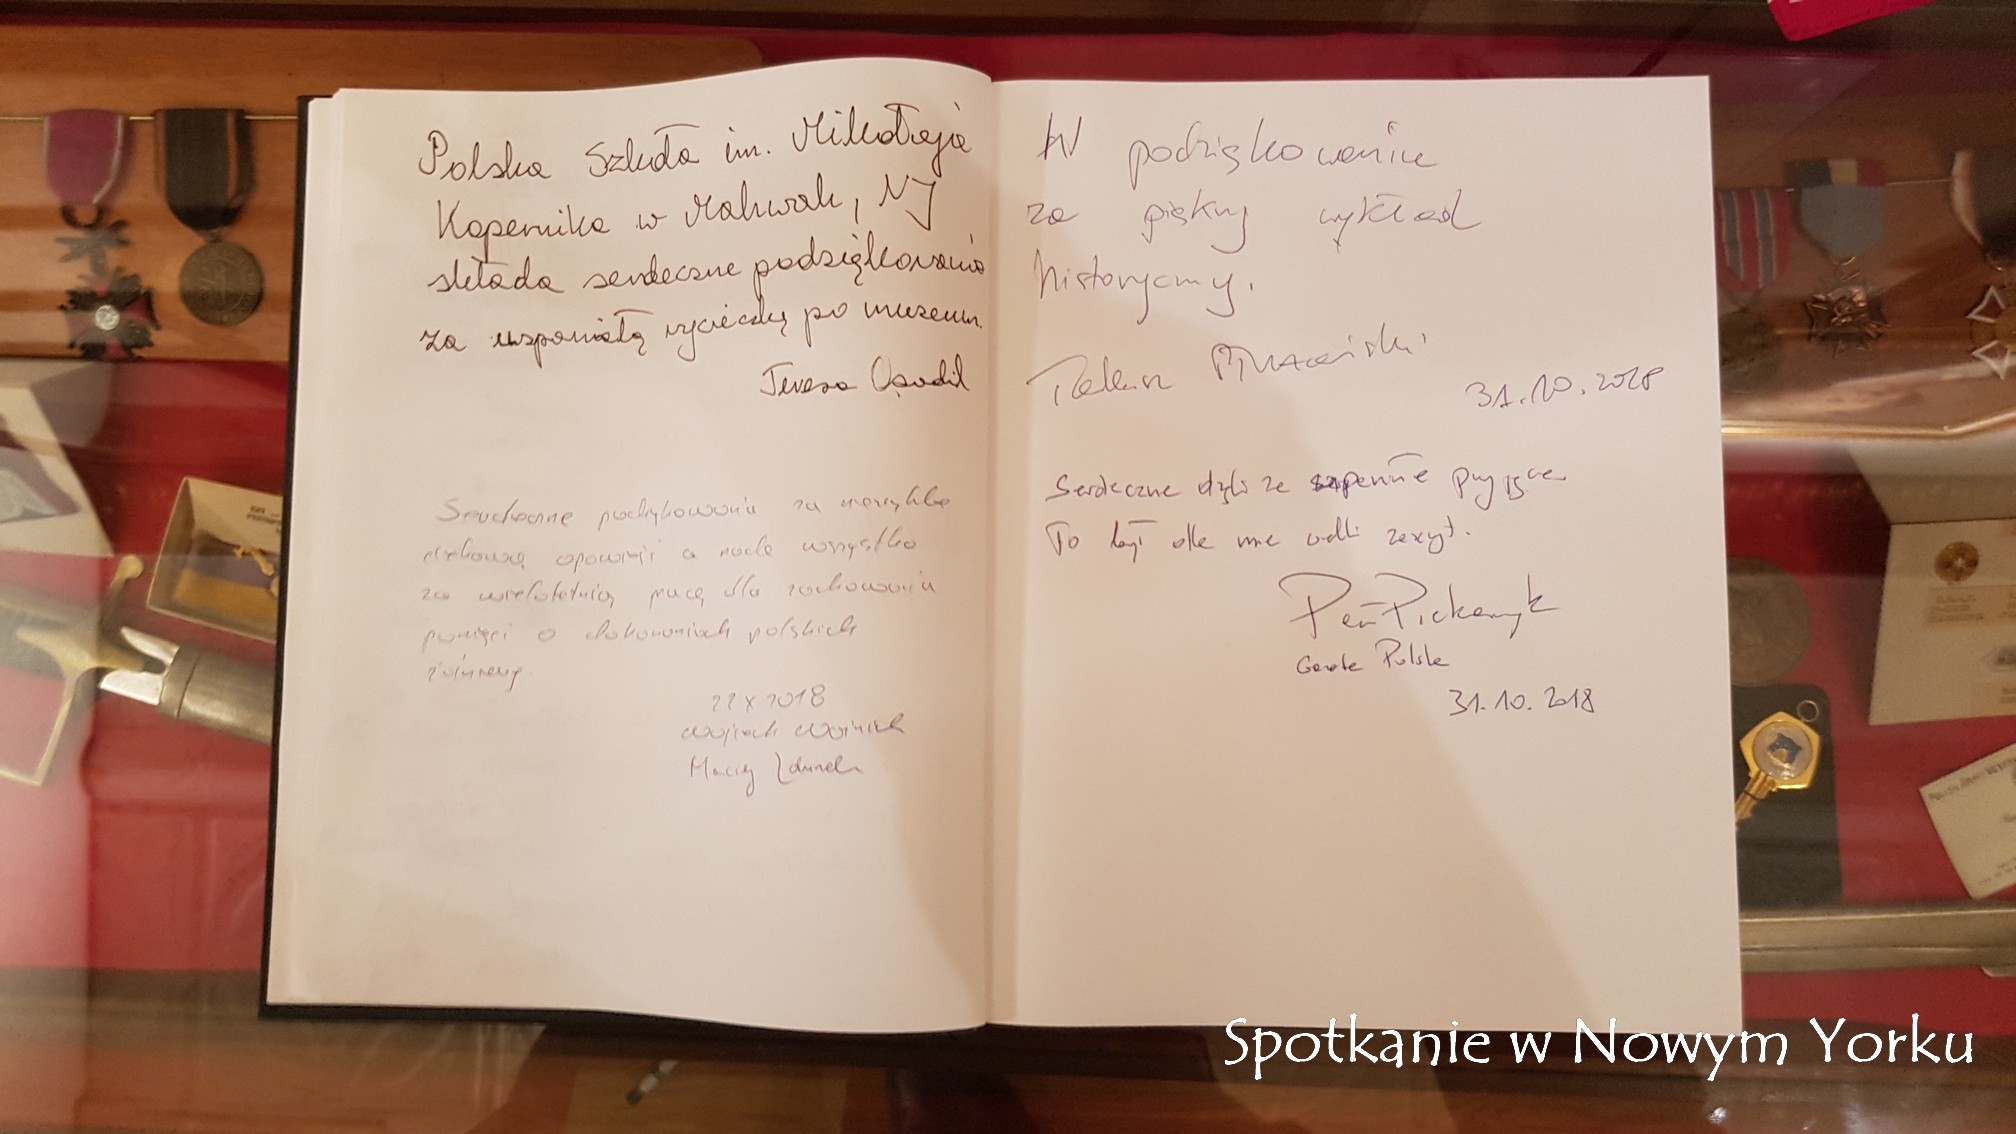 Polska Szkoła im. Mikołaja
Kopernika w Mahwah, NJ
składa serdeczne podziękowania
za wspaniałą wycieczkę po muzeum.
Teresa
Serdeczne podziękowania za niezwykle
ciekawą opowieść a nade wszystko
za wieloletnią pracę dla zachowania
pamięci o dokonaniach polskich
żołnierzy
22 X 2018
Wojciech Woźniak
Maciej Zdunek
W podziękowaniu
za piękny wykład
historyczny.
31.10.2018
Serdeczne dzięki za wspaniałe przyjęcie.
To był dla mnie wielki zaszczyt.
Gazeta Polska
31.10.2018
Spotkanie w Nowym Yorku